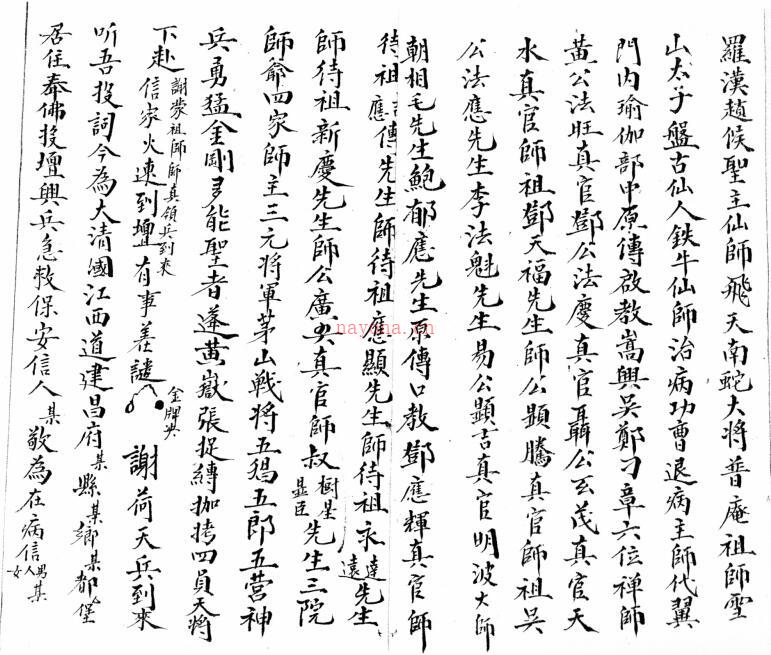 羅漢趙候聖主仙師飛天南蛇大将普庵祖師雪
山太子盤古仙人鉄牛仙師治病功曹退病主師代翼
門内瑜伽部中原傳啟教嵩興吴鄭刁章六位禅師
黄公法旺真官鄧公法慶真官聶公玄茂真官天
水真官師祖鄧天福先生師公顕騰真官師祖吴
公法應先生李法魁先生易公顕吉真官明波大師
朝相毛先生鮑郁應先生原傳口教鄧應輝真官師
侍祖應吉傳先生師侍祖應顯先生師侍祖永達遠先生
師侍祖新慶先生師公廣真官師叔樹星显臣先生三院
師爺四家師主三元将軍茅山戦将五猖五郎五营神
兵勇猛金剛多能聖者蓬黄嶽張捉縛枷拷四員天将
下赴信家火速到壇有事差謴 謝荷天兵到來
謝蒙祖師師真領兵到來
金牌奂
听吾投詞今為大清國江西道建昌府某縣某鄉某都堡
居住奉佛投壇興兵急救保安信人某敬為在病信人男女某
nayona.cn